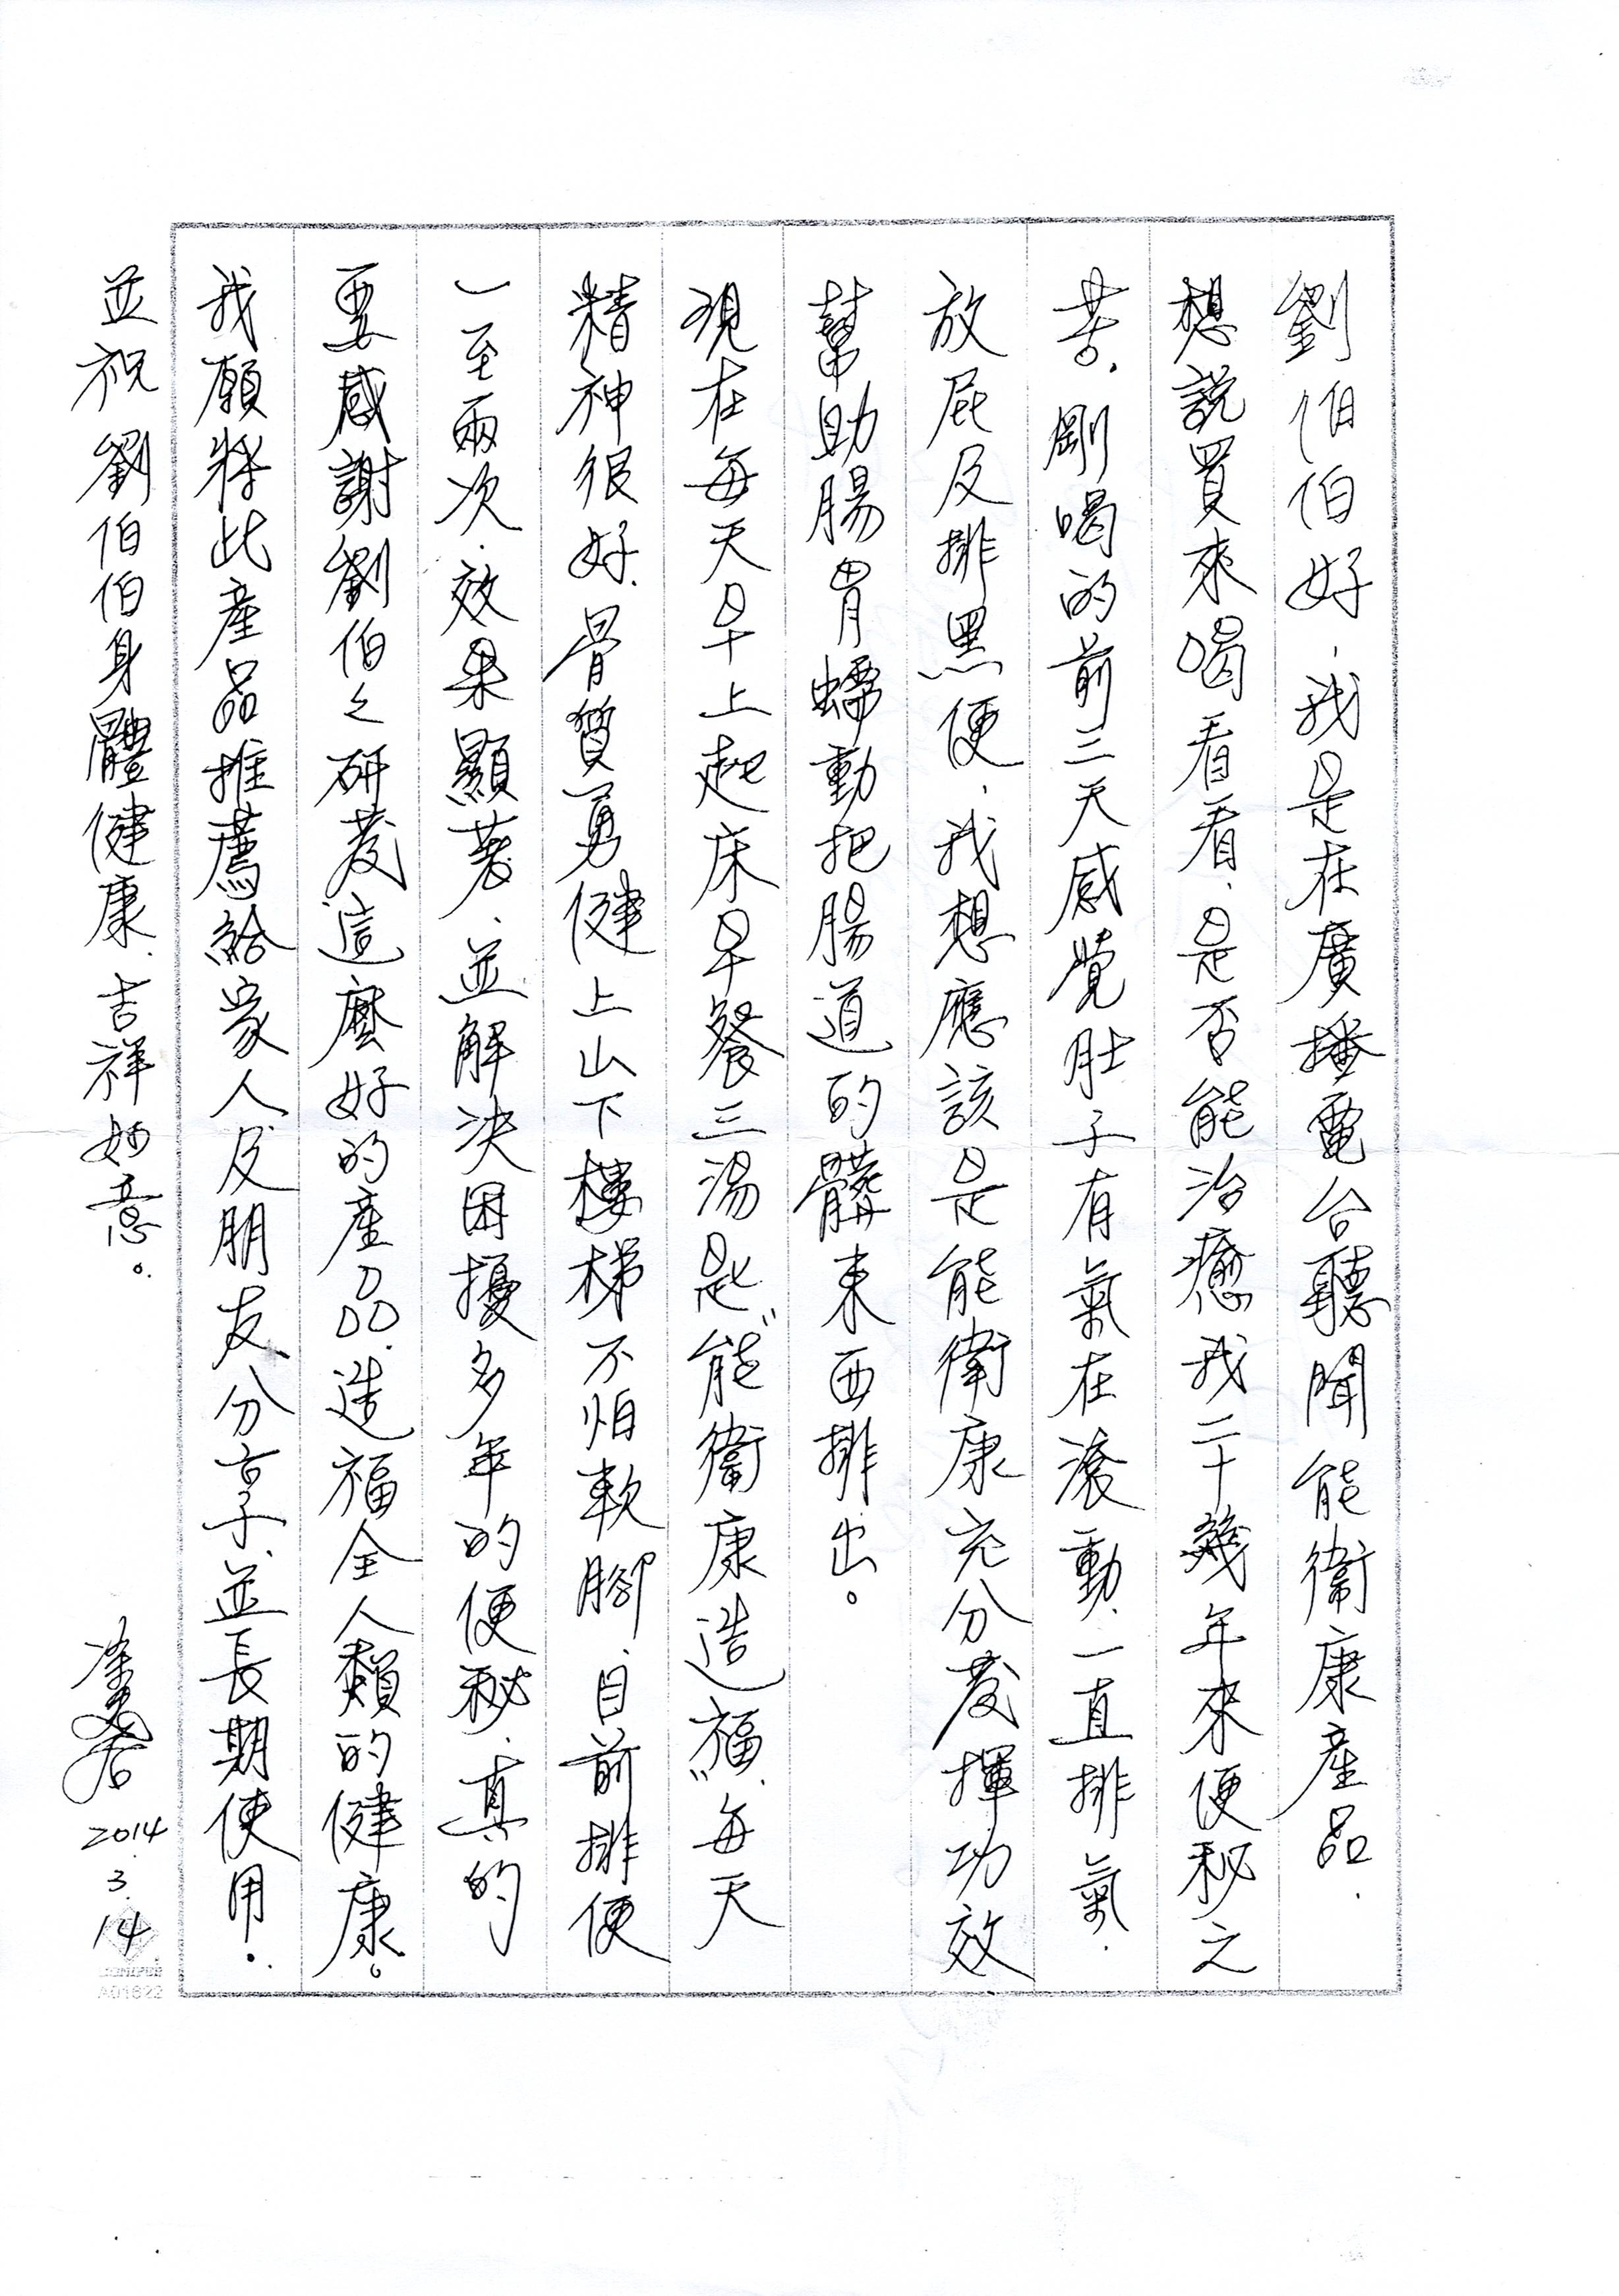 劉伯伯好，我是在廣播電台聽聞能衛康產品，
想說買來喝看看，是否能治癒我二十幾年來便秘之
苦，剛喝的前三天感覺肚子有氣在滾動，一直排氣，
放屁及排黑便，我想應該是能衛康充分發揮功效
幫助腸胃蠕動把腸道的髒東西排出。
現在每天早上起床早餐三湯匙"能衛康造福"，每天
精神很好，骨質勇健上山下樓梯不怕軟腳，目前排便
一至兩次，效果顯著，並解決困擾多年的便秘，真的
要感謝劉伯之研發這麼好的產品，造福全人類的健康。
我願將此產品推薦給家人及朋友分享，並長期使用。
並祝 劉伯伯身體健康，吉祥如意。
2014.3.14
A01822